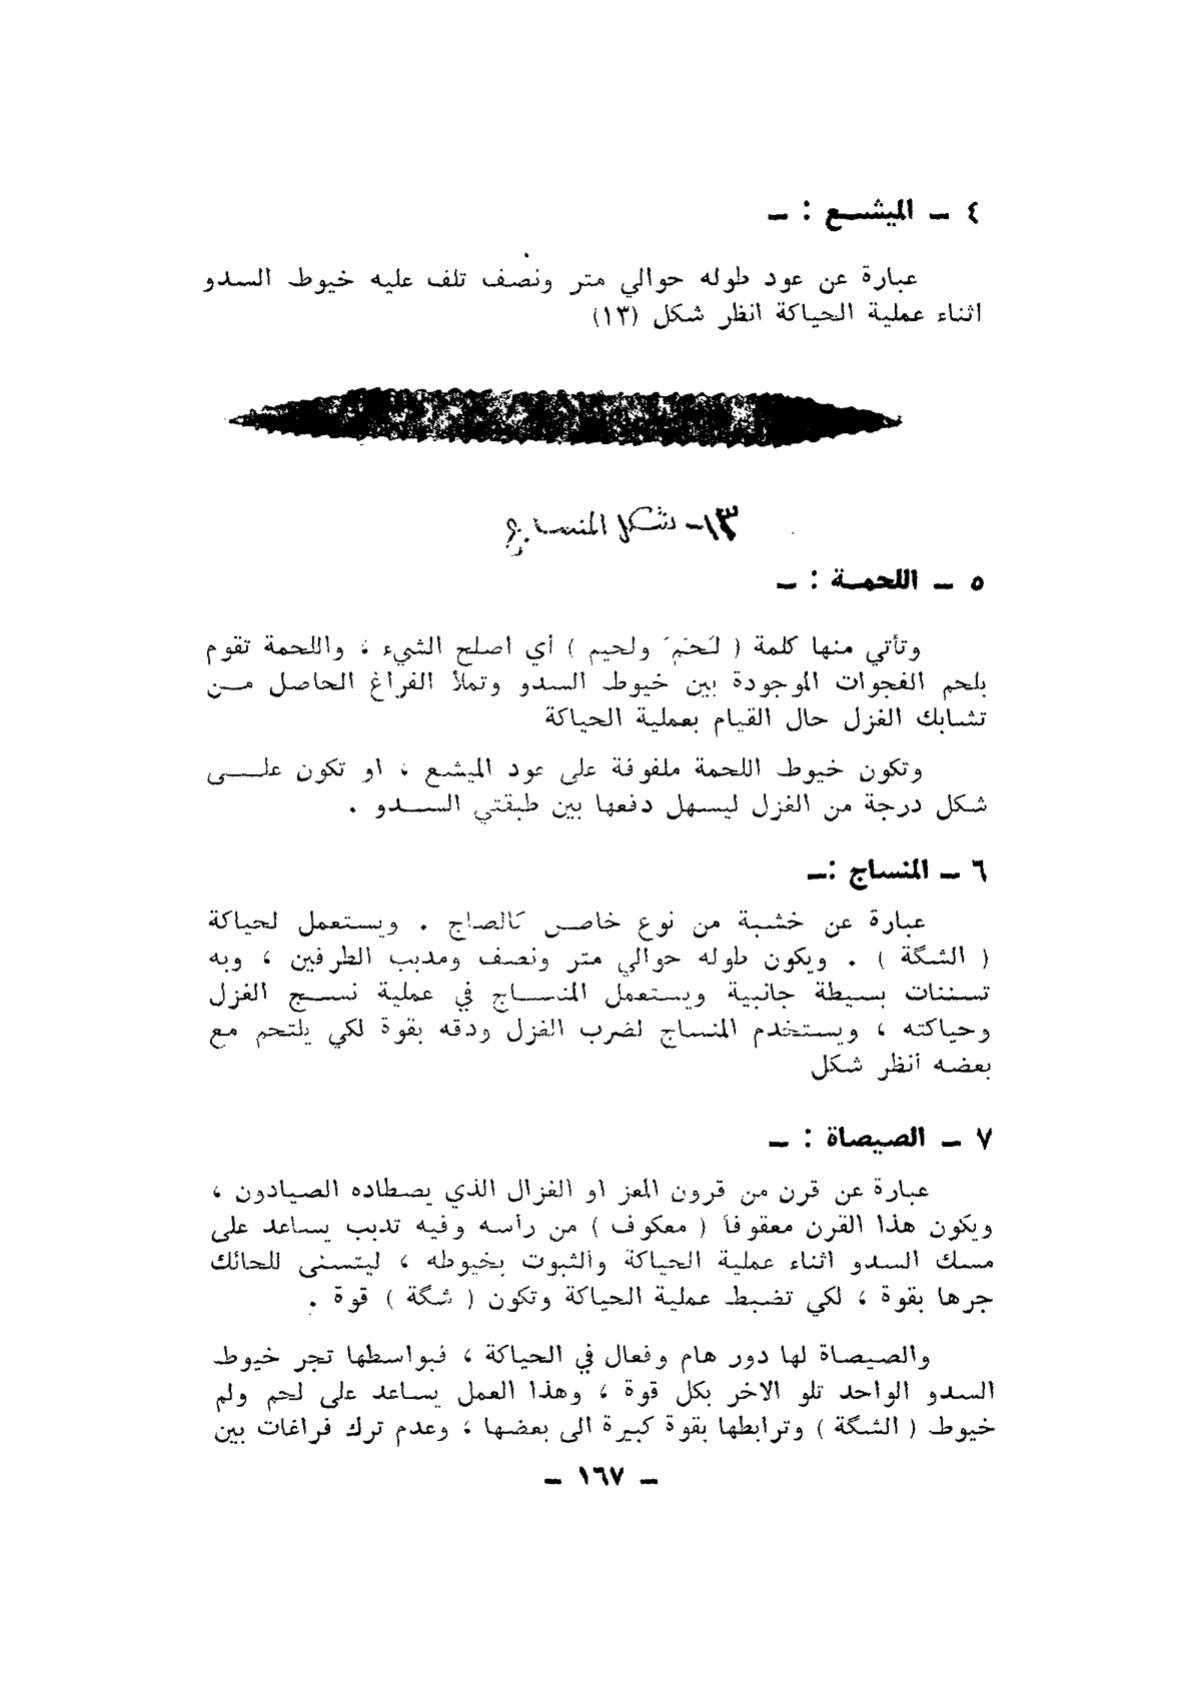 ٤ ـ الميشـــع : ـ
عبارة عن عود طوله حوالي متر ونصف تلف عليه خيوط السدو
اثناء عملية الحياكة انظر شكل (١٣)
١٣- شكل المنساج
٥ ـ اللحمــة : ـ
وتأتي منها كلمة ( لَحَمَ ولحيم ) أي اصلح الشيء ، واللحمة تقوم
بلحم الفجوات الموجودة بين خيوط السدو وتملأ الفراغ الحاصل مــن
تشابك الغزل حال القيام بعملية الحياكة
وتكون خيوط اللحمة ملفوفة على عود الميشع ، او تكون علــــى
شكل درجة من الغزل ليسهل دفعها بين طبقتي الســـدو .
٦ ـ المنساج :ـ
عبارة عن خشبة من نوع خاص كالصاج . ويستعمل لحياكة
( الشگة ) . ويكون طوله حوالي متر ونصف ومدبب الطرفين ، وبه
تسننات بسيطة جانبية ويستعمل المنســاج في عملية نســـج الغزل
وحياكته ، ويستخدم المنساج لضرب الغزل ودقه بقوة لكي يلتحم مع
بعضه أنظر شكل
٧ ـ الصيصاة : ـ
عبارة عن قرن من قرون المعز او الغزال الذي يصطاده الصيادون ،
ويكون هذا القرن معقوفاً ( معكوف ) من رأسه وفيه تدبب يساعد على
مسك السدو اثناء عملية الحياكة والثبوت بخيوطه ، ليتسنى للحائك
جرها بقوة ، لكي تضبط عملية الحياكة وتكون ( شگة ) قوة .
والصيصاة لها دور هام وفعال في الحياكة ، فبواسطها تجر خيوط
السدو الواحد تلو الاخر بكل قوة ، وهذا العمل يساعد على لحم ولم
خيوط ( الشگة ) وترابطها بقوة كبيرة الى بعضها ، وعدم ترك فراغات بين
ـ ١٦٧ ـ